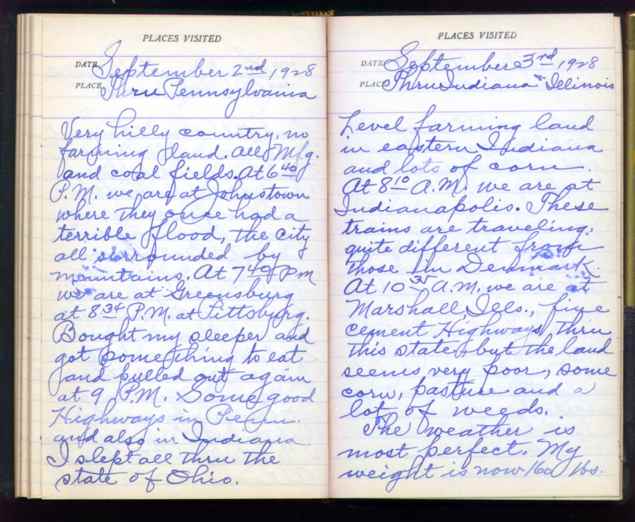 PLACES VISITED
DATE September 2nd, 1928
PLACE Thru Pennsylvania
Very hilly country, no
farming land. All Mfg.
and coal fields. At 6 40
P.M. we are at Johnstown
where they once had a
terrible flood, the city
all surrounded by
mountains. At 7 49 P.M
we are at Greensburg
at 8 34 P.M. at Pittsburg.
Bought my sleeper and
got something to eat
and pulled out again
at 9 P.M. Some good
Highways in Penn.
and also in Indiana
I slept all thru the
state of Ohio.
PLACES VISITED
DATE September 3rd, 1928
PLACE Thru Indiana & Illinois
Level farming land
in eastern Indiana
and lots of corn.
At 8 10 A.M. we are at
Indianapolis. These
trains are traveling,
quite different from
those in Denmark
At 10 35 A.M. we are at
Marshall, Ills., fine
cement Highways thru
this state, but the land
seems very poor, some
corn, pasture and a
lot of weeds.
The weather is
most perfect. My
weight is now 160 lbs.